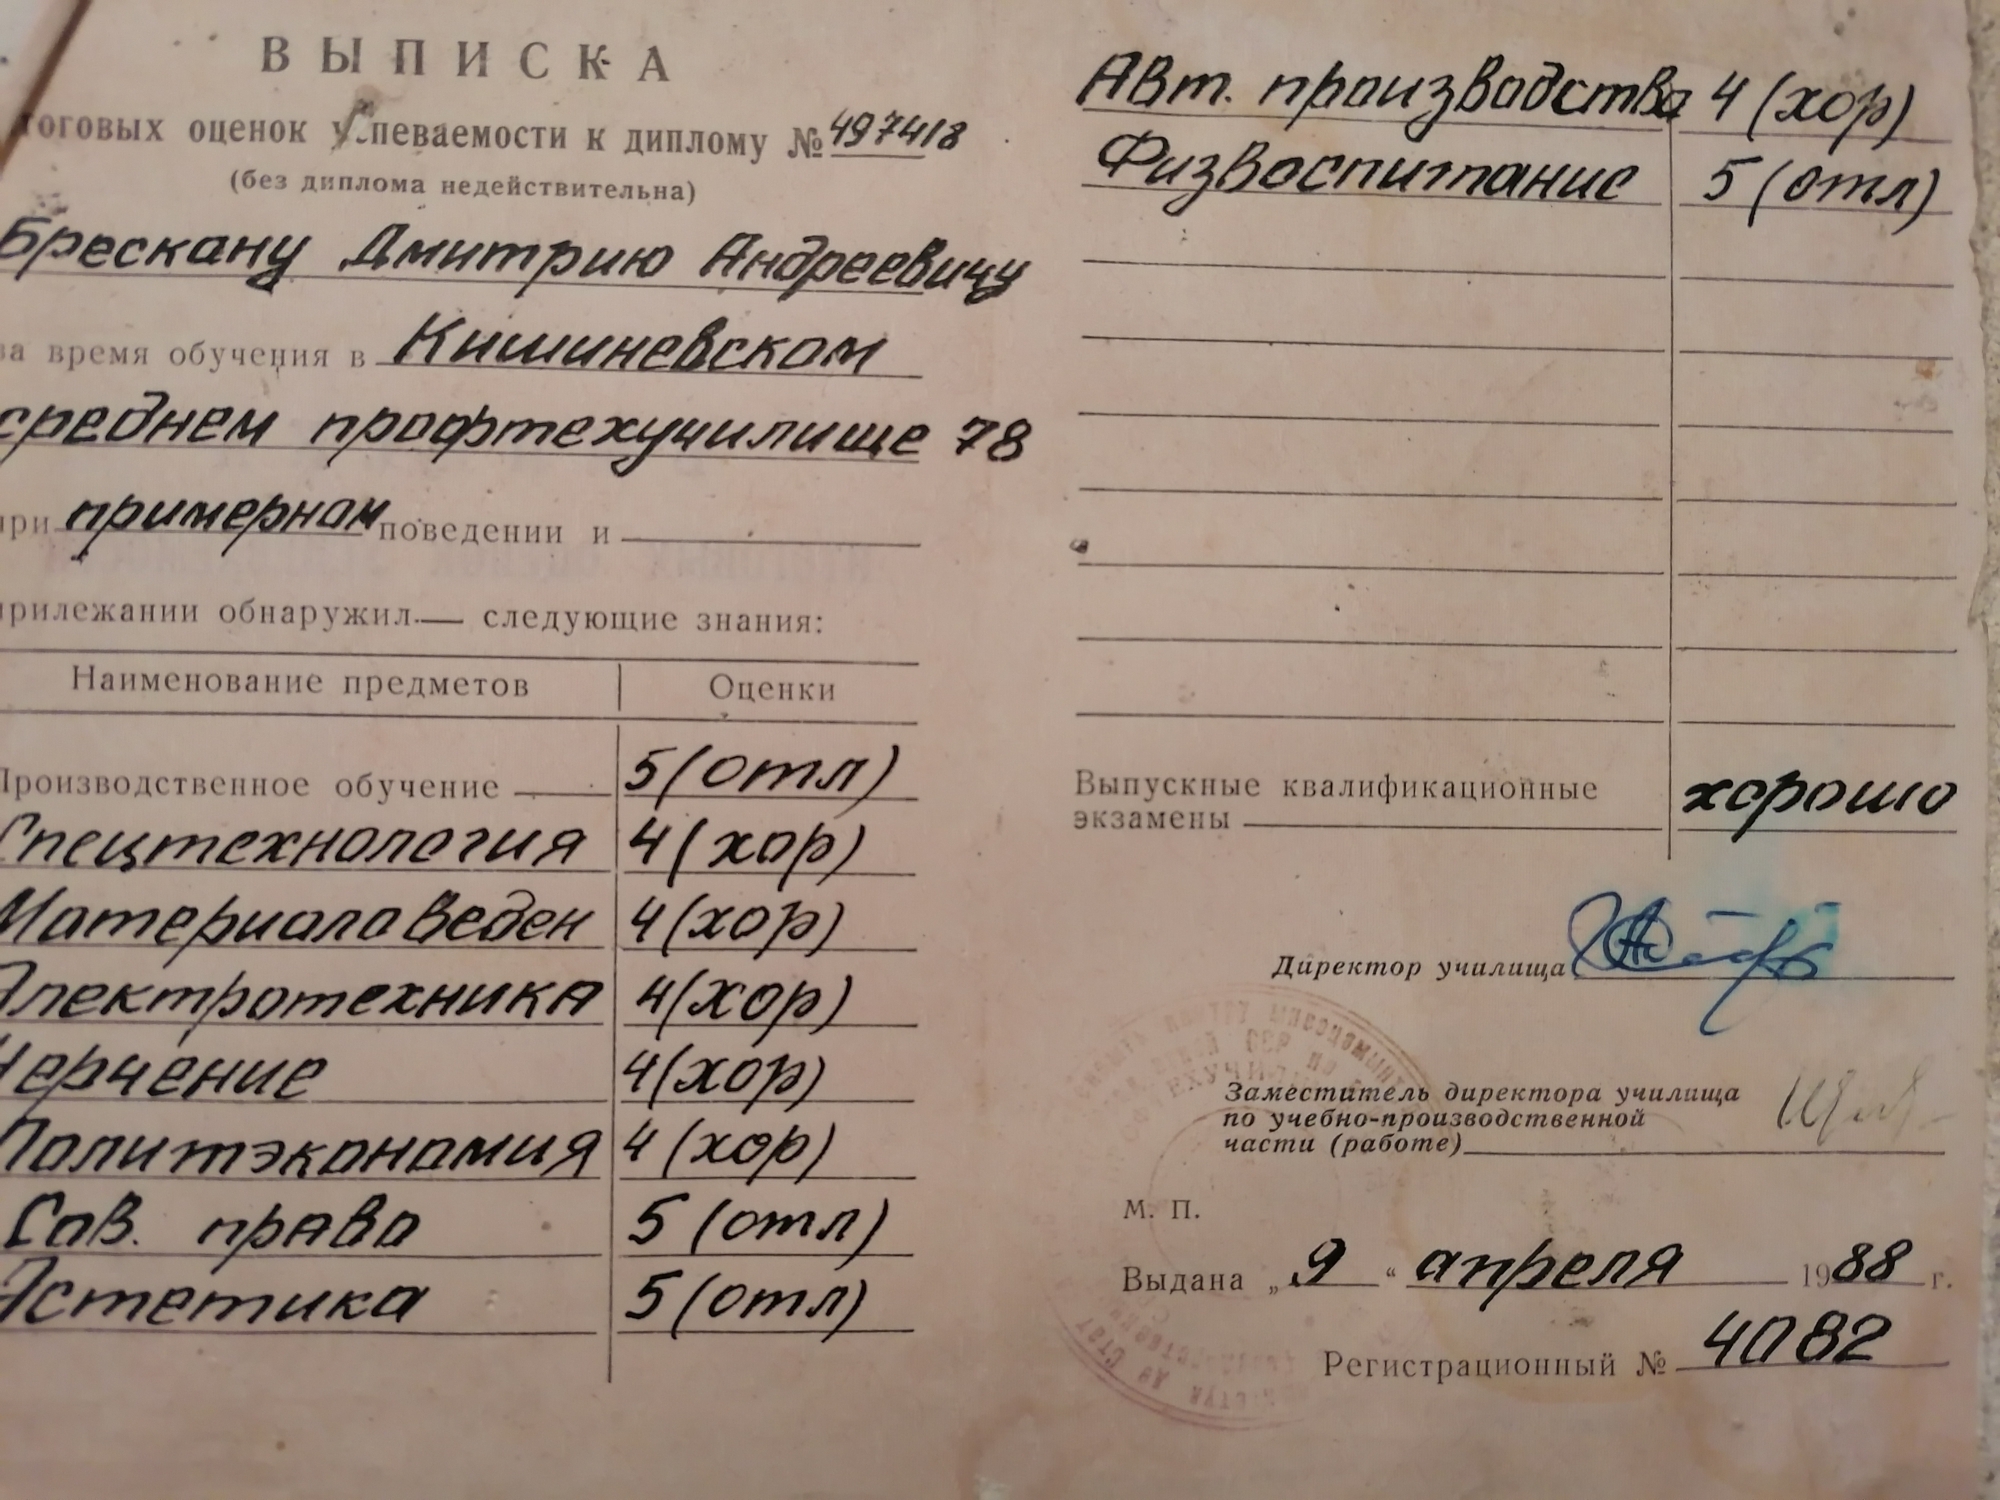 ВЫПИСКА
тоговых оценок успеваемости к диплому № 497418
(без диплома недействительна)
Брескану Дмитрию Андреевичу
за время обучения в Кишиневском
среднем профтехучилище 78
при примерном поведении и
прилежании обнаружил — следующие знания:
Наименование предметов Оценки
Производственное обучение 5 (отл)
Спецтехнология 4 (хор)
Материаловеден 4 (хор)
Электротехника 4 (хор)
Черчение 4 (хор)
Политэкономия 4 (хор)
Сов. право 5 (отл)
Эстетика 5 (отл)
Авт. производства 4 (хор)
Физвоспитание 5 (отл)
Выпускные квалификационные
экзамены хорошо
Директор училища
Заместитель директора училища
по учебно-производственной
части (работе)
М. П.
Выдана „ 9 “ апреля 1988 г.
Регистрационный № 4082